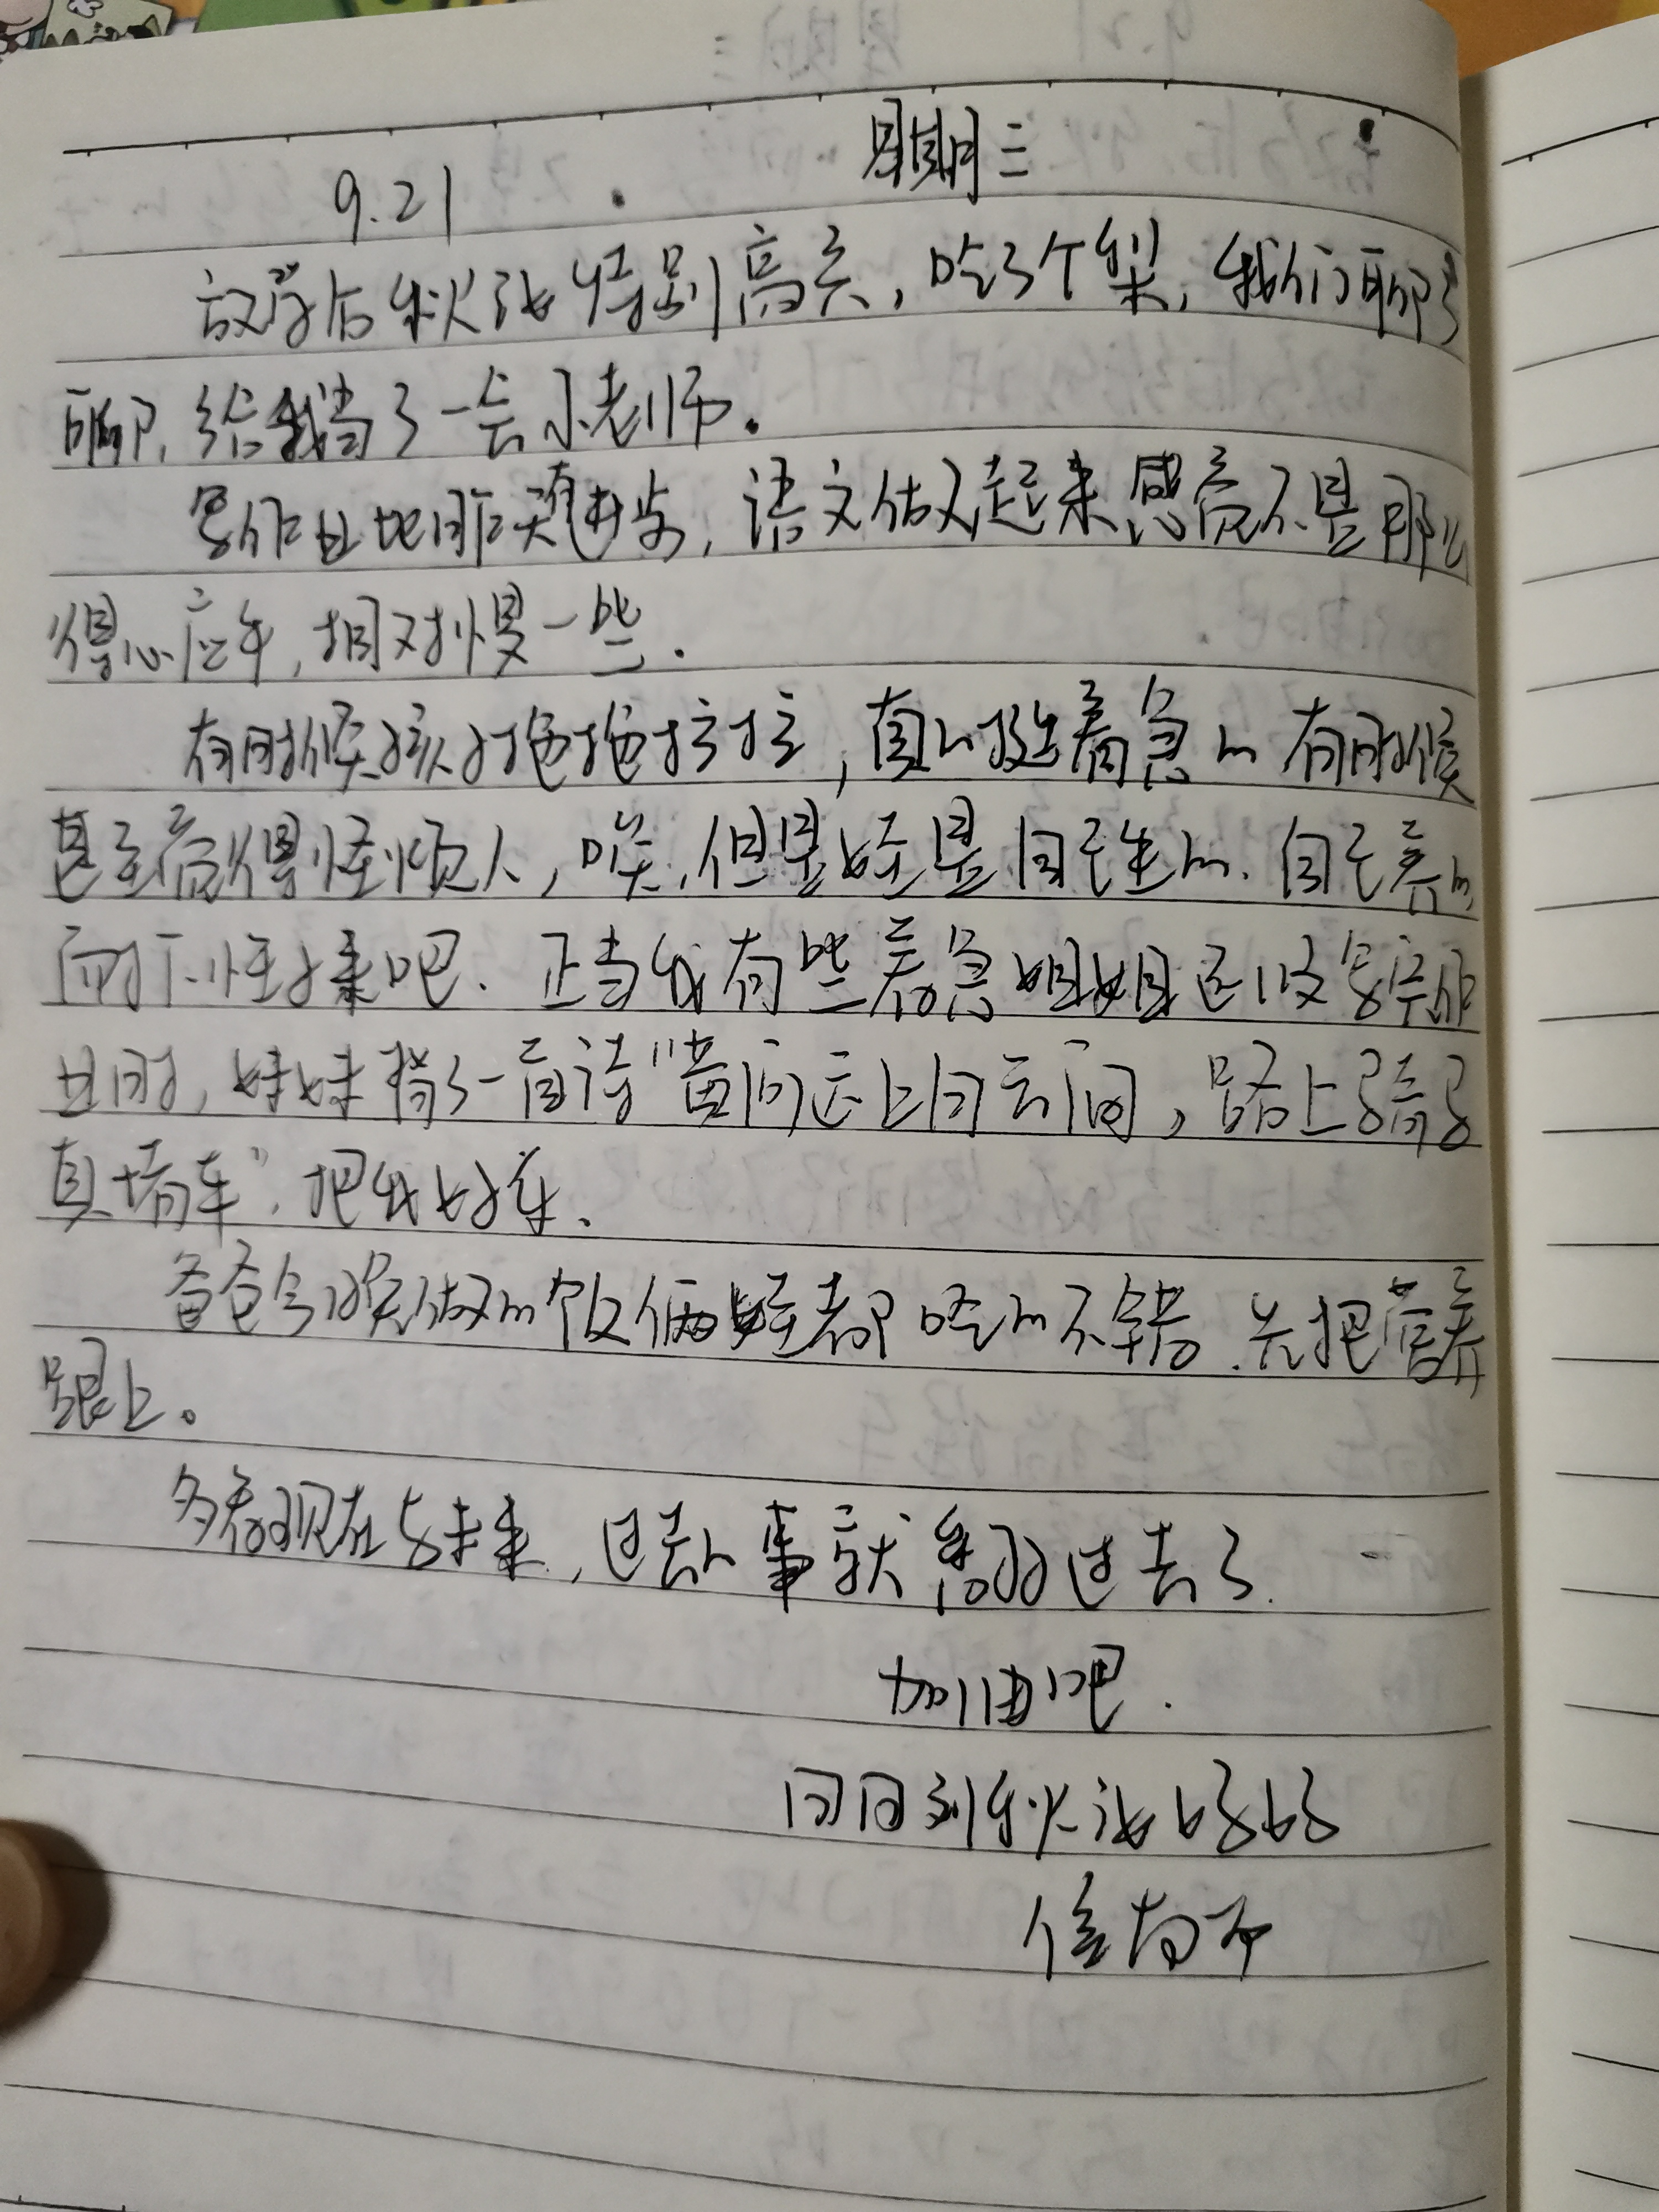 9.21 星期三
放学后秋泓特别高兴，吃了个梨，我们聊了
聊，给我当了一会小老师。
写作业比昨天进步，语文做起来感觉不是那么
得心应手，相对慢一些.
有时候孩好拖拖拉拉，真的挺着急的有时候
甚至觉得怪烦人，唉，但是娃是自己生的. 自己养的
耐下性来吧. 正当我有些着急姐姐还没写完作
业时，妹妹背了一首诗“黄河远上白云间，路上骑
真堵车”. 把我
爸爸今晚做的饭俩娃都吃的不错. 先把营养
跟上。
多看现在与未来，过去的事就过去了.
加油吧.
回到秋泓好好